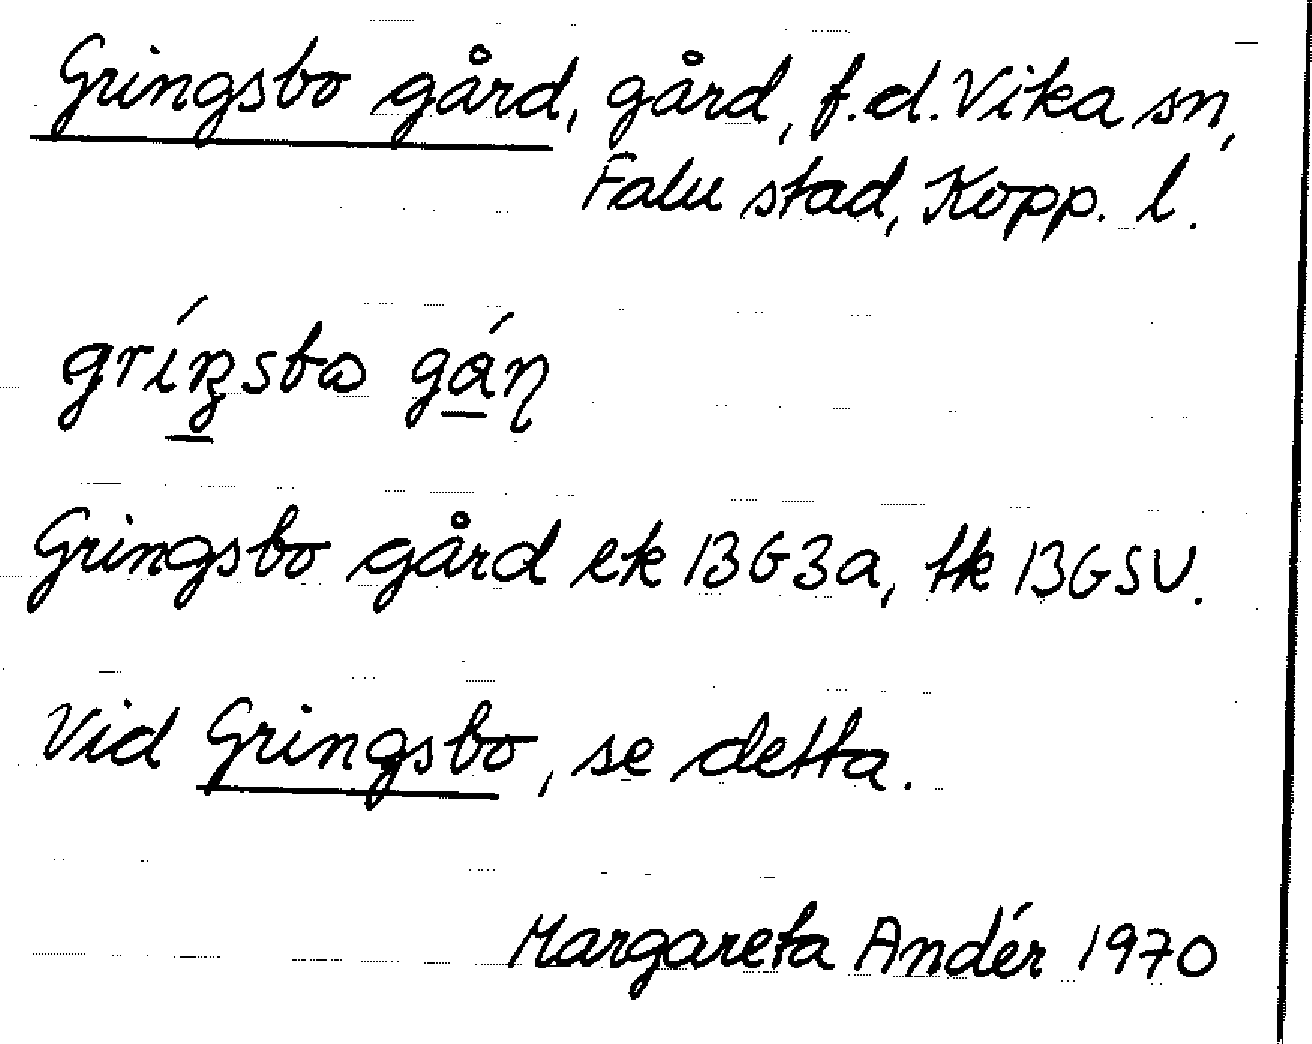 Gringsbo gård, gård, f.d. Vika sn,
Falu stad, Kopp. l.
Gringsbo gård ek 13G3a, tk 13GSV.
Vid Gringsbo, se detta.
Margareta Andér 1970